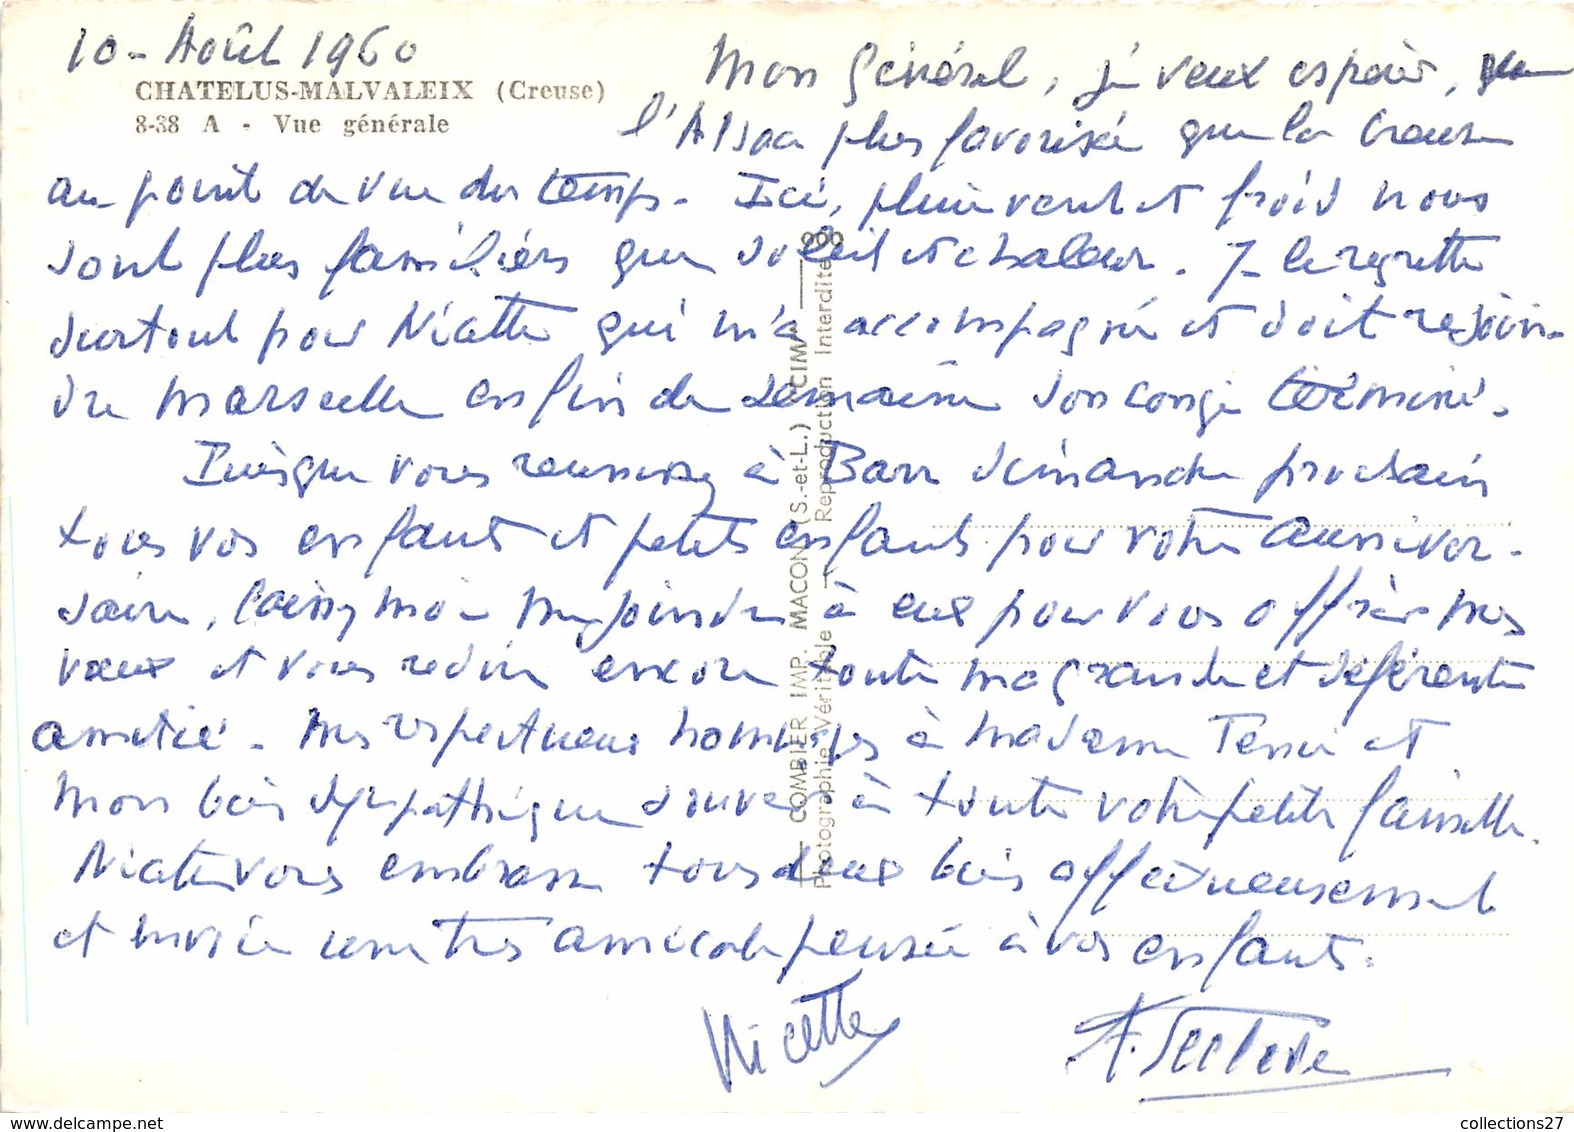 10 - Août 1960
CHATELUS-MALVALEIX (Creuse)
8-38 A - Vue générale
Mon Général, je veux espérer, que
l'Alsace plus favorisée que la Creuse
au point de vue du temps. Ici, pluie vent et froid nous
sont plus familiers que soleil et chaleur. Je le regrette
surtout pour Nicette qui m'a accompagné et doit rejoin-
dre Marseille en fin de semaine son congé terminé.
Puisque vous réunissez à Barr dimanche prochain
tous vos enfants et petits enfants pour votre anniver-
saire, laissez moi me joindre à eux pour vous offrir mes
vœux et vous redire encore toute ma grande et déférente
amitié. Mes respectueux hommages à Madame et
mon bien sympathique souvenir à toute votre petite famille.
Nicette vous embrasse tous deux bien affectueusement
et envoie une très amicale pensée à vos enfants.
Nicette
COMBIER IMP. MACON (S.-et-L.) "CIM"
Photographie Véritable - Reproduction Interdite
collections27